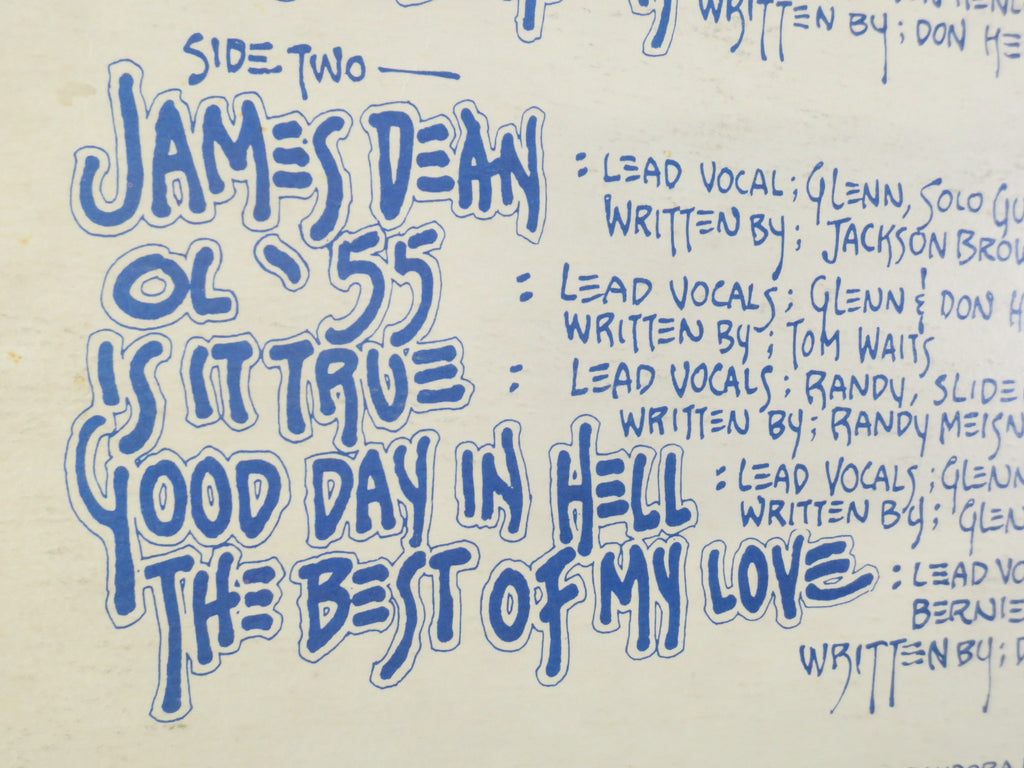 WRITTEN BY; DON HE
SIDE TWO —
JAMES DEAN : LEAD VOCAL; GLENN, SOLO GU
WRITTEN BY; JACKSON BROW
OL '55 : LEAD VOCALS; GLENN & DON H
WRITTEN BY; TOM WAITS
IS IT TRUE : LEAD VOCALS; RANDY, SLIDE
WRITTEN BY; RANDY MEISN
GOOD DAY IN HELL : LEAD VOCALS; GLENN
WRITTEN BY; GLEN
THE BEST OF MY LOVE : LEAD VO
BERNIE
WRITTEN BY; D